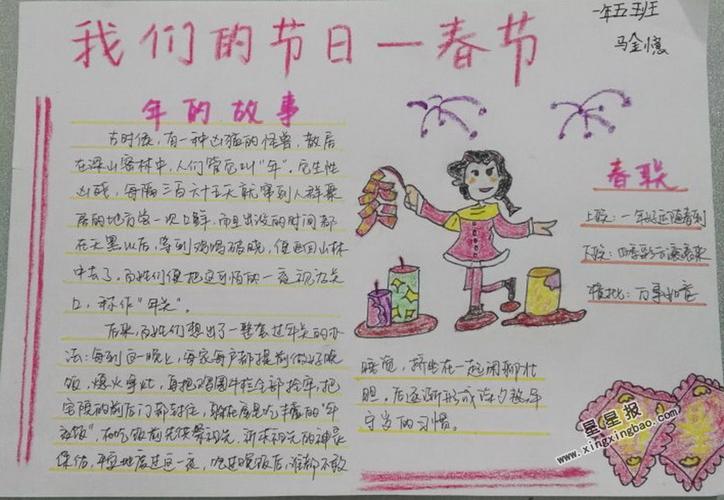 我们的节日—春节
一年五班
马金憶
年的故事
古时候,有一种凶猛的怪兽,散居
在深山密林中,人们管它叫"年"。它生性
凶残,每隔三百六十五天就窜到人群聚
居的地方尝一次口鲜,而且出没的时间都
在天黑以后,等到鸡鸣破晓,便返回山林
中去了。百姓们便把这可怕的一夜视为关
口,称作"年关"。
后来,百姓们想出了一整套过年关的办
法:每到这一晚上,每家每户都提前做好晚
饭,熄火净灶,再把鸡圈牛栏全部拴牢,把
宅院的前后门都封住,躲在屋里吃丰盛的"年
夜饭",在吃饭前先供祭祖先,祈求祖先的神灵
保佑,平安地度过这一夜,吃过晚饭后,谁都不敢
睡觉,挤坐在一起闲聊壮
胆。后逐渐形成除夕熬年
守岁的习惯。
春联
上联:一年好运随春到
下联:四季彩云滚滚来
横批:万事如意
星星报
www.xingxingbao.com